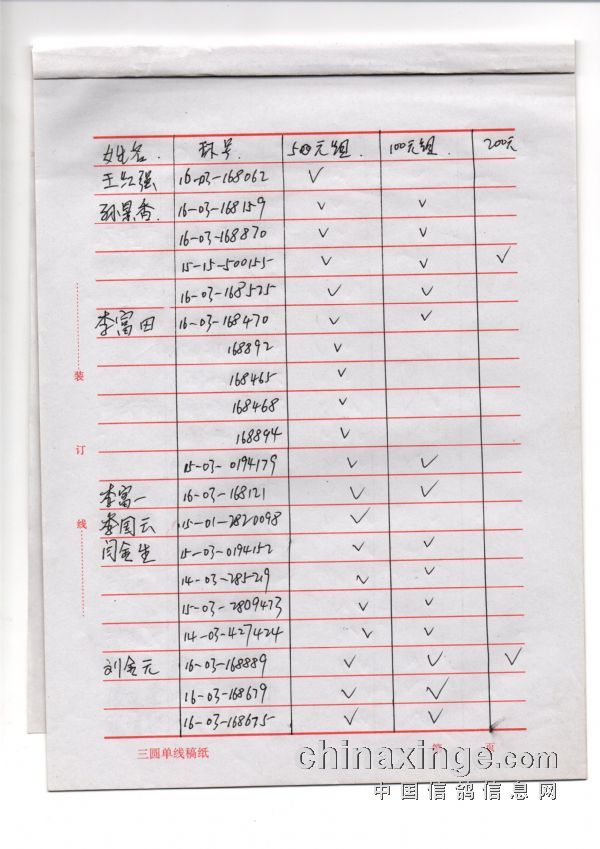 姓名. 环号. 50元组. 100元组. 200元
王红强 16-03-168062 ✓
孙景香. 16-03-168159 ✓ ✓
16-03-168870 ✓ ✓
15-15-500155 ✓ ✓ ✓
16-03-168525 ✓ ✓
李富田 16-03-168470 ✓ ✓
168892 ✓
168465 ✓
168468 ✓
168894 ✓
15-03-0194179 ✓ ✓
李富一 16-03-168121 ✓ ✓
李国云 15-01-2820098 ✓
闫金生 15-03-0194152 ✓ ✓
14-03-285219 ✓ ✓
15-03-2809473 ✓ ✓
14-03-427424 ✓ ✓
刘金元 16-03-168889 ✓ ✓ ✓
16-03-168679 ✓ ✓
16-03-168675 ✓ ✓
装
订
线
三圆单线稿纸 第 页
chinaxinge.com
中国信鸽信息网